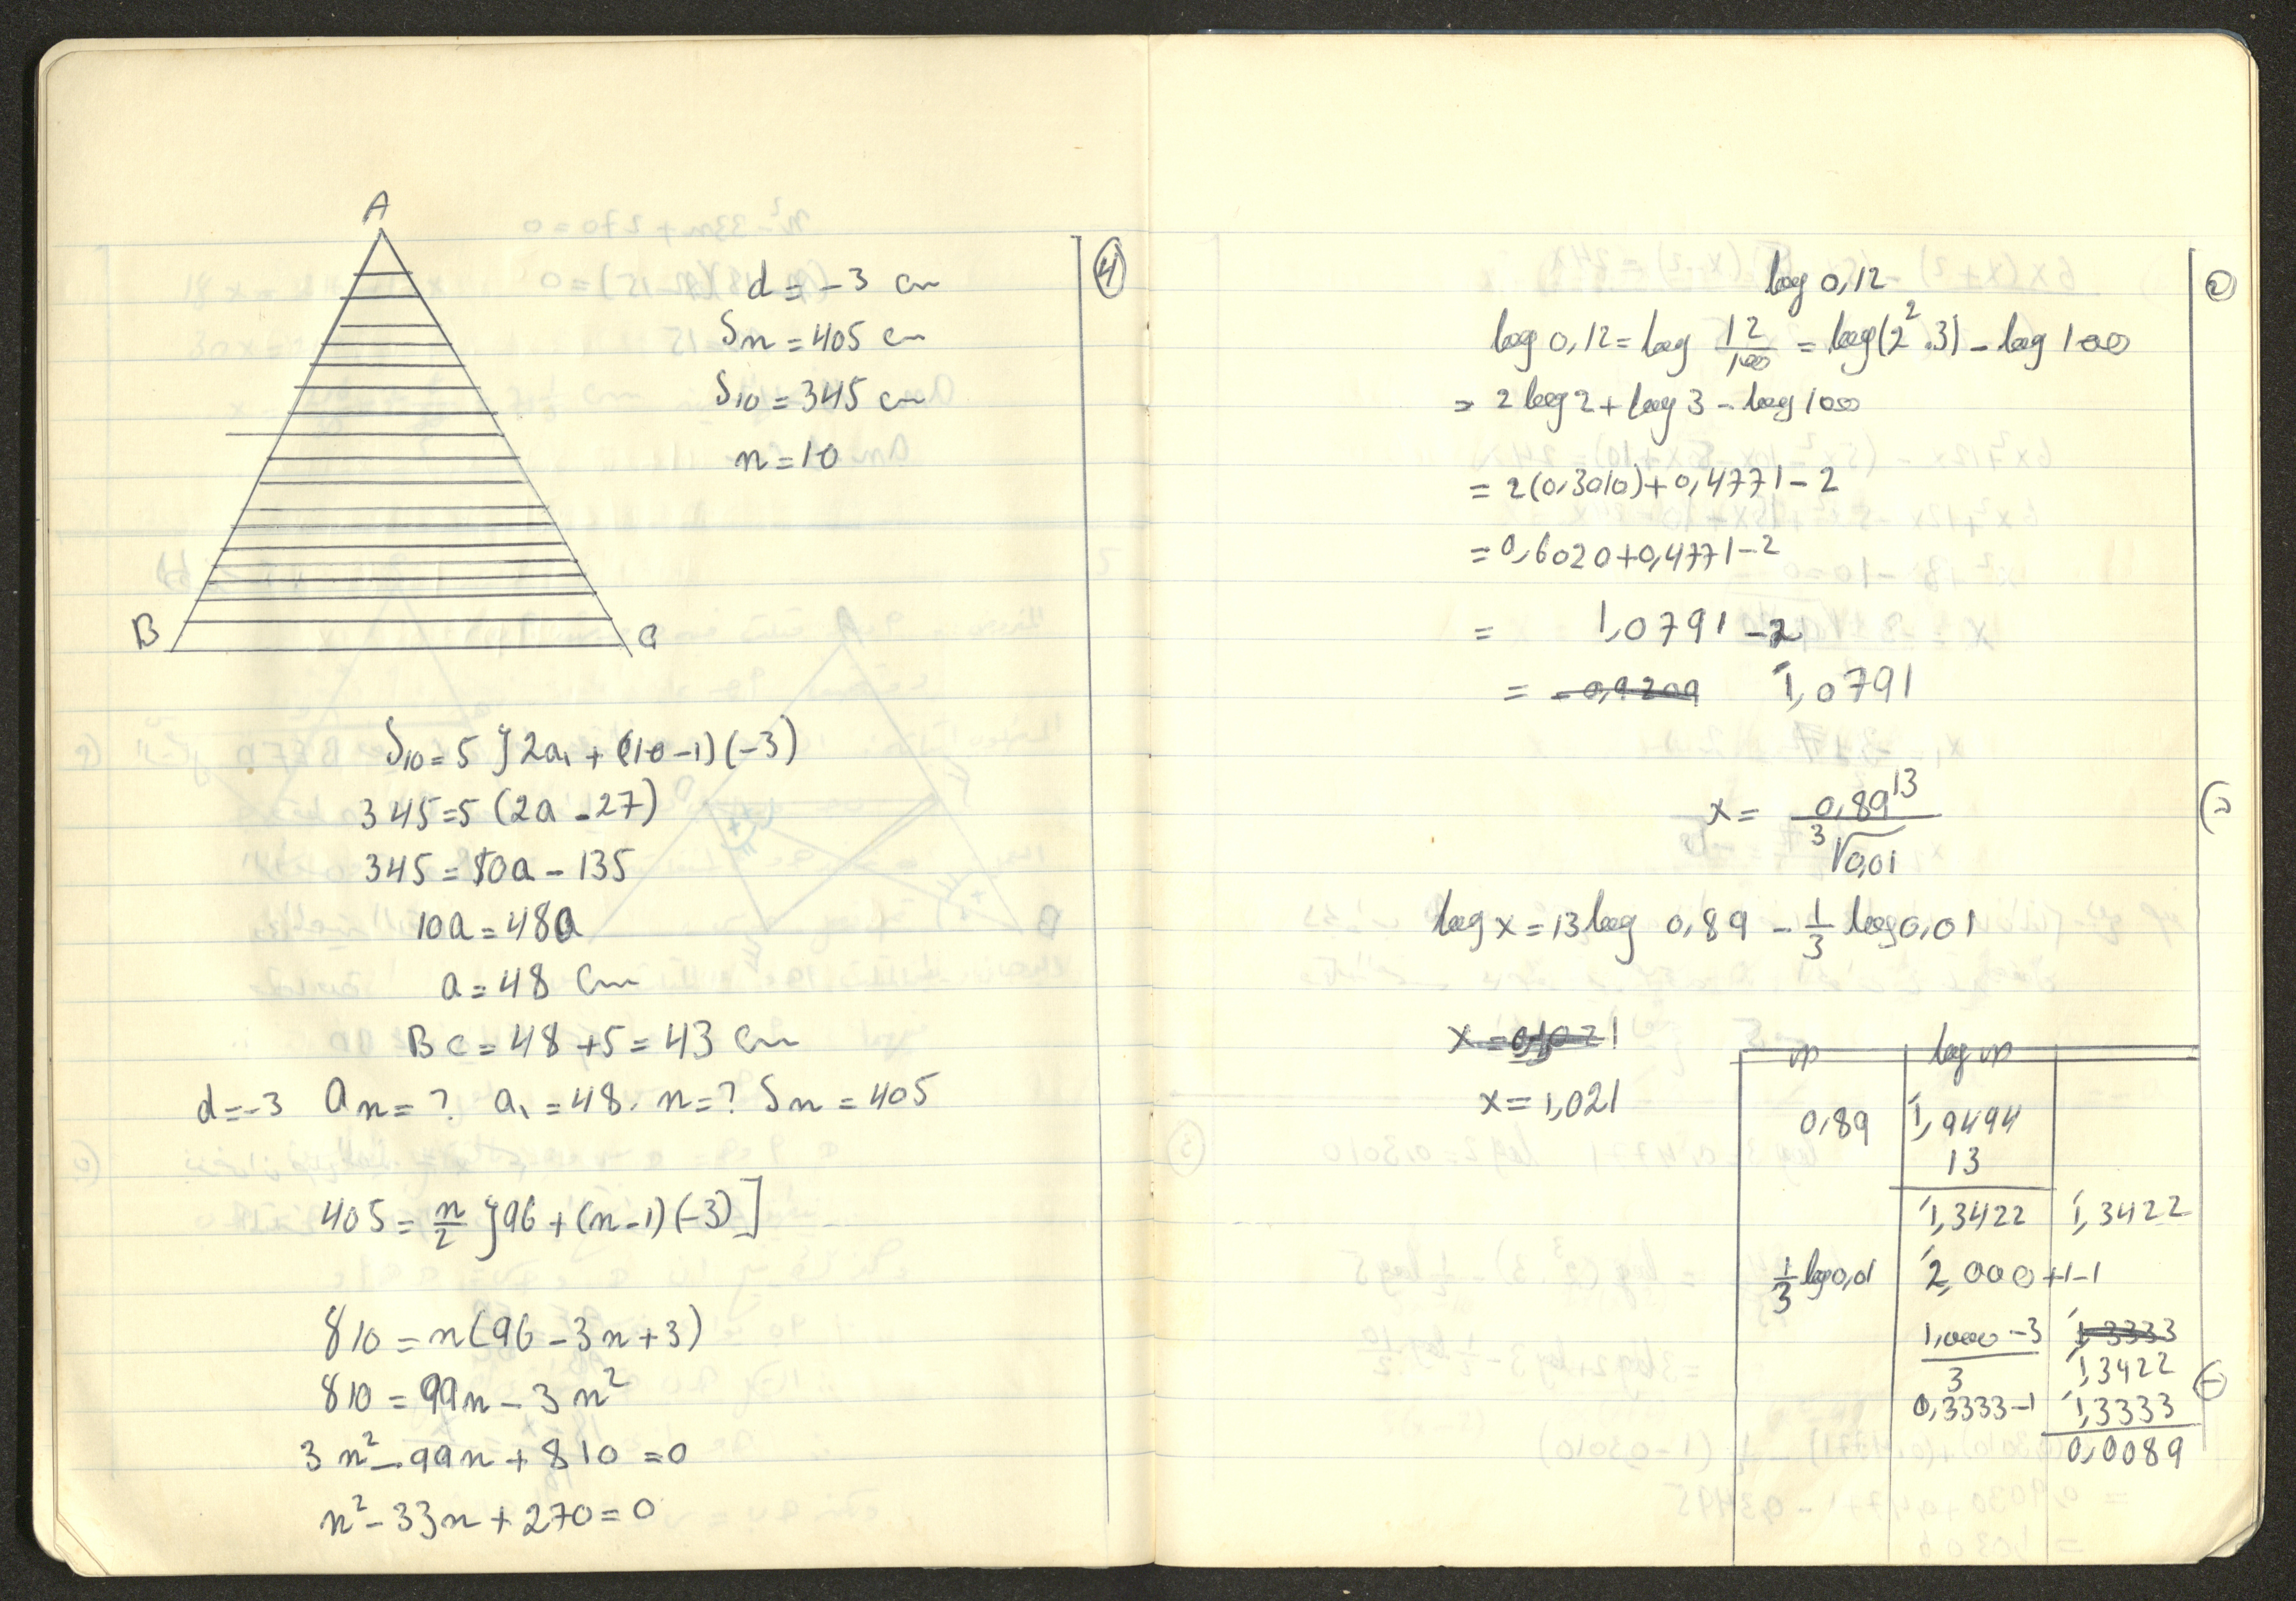 A
B
C
④
d = -3 cm
Sn = 405 cm
S10 = 345 cm
n = 10
S10 = 5 } 2a1 + (10-1)(-3)
345 = 5 (2a - 27)
345 = 10a - 135
10a = 480
a = 48 cm
BC = 48 + 5 = 43 cm
d = -3 an = ? a1 = 48. n = ? Sn = 405
405 = n/2 } 96 + (n-1)(-3) ]
810 = n(96 - 3n + 3)
810 = 99n - 3n²
3n² - 99n + 810 = 0
n² - 33n + 270 = 0
log 0,12
log 0,12 = log 12/100 = log(2².3) - log 100
= 2 log 2 + log 3 - log 100
= 2(0,3010) + 0,4771 - 2
= 0,6020 + 0,4771 - 2
= 1,0791 - 2
= -0,9209 1̄,0791
x = 0,89¹³ / ³√0,01
log x = 13 log 0,89 - 1/3 log 0,01
x = 0,1021
x = 1,021
m log m
0,89 1̄,9494
13
1̄,3422 1̄,3422
1/3 log 0,01 2̄,000 + 1 - 1
1,000 - 3 / 3 1̄,3333
1̄,3422
0,3333 - 1 1̄,3333
0,0089